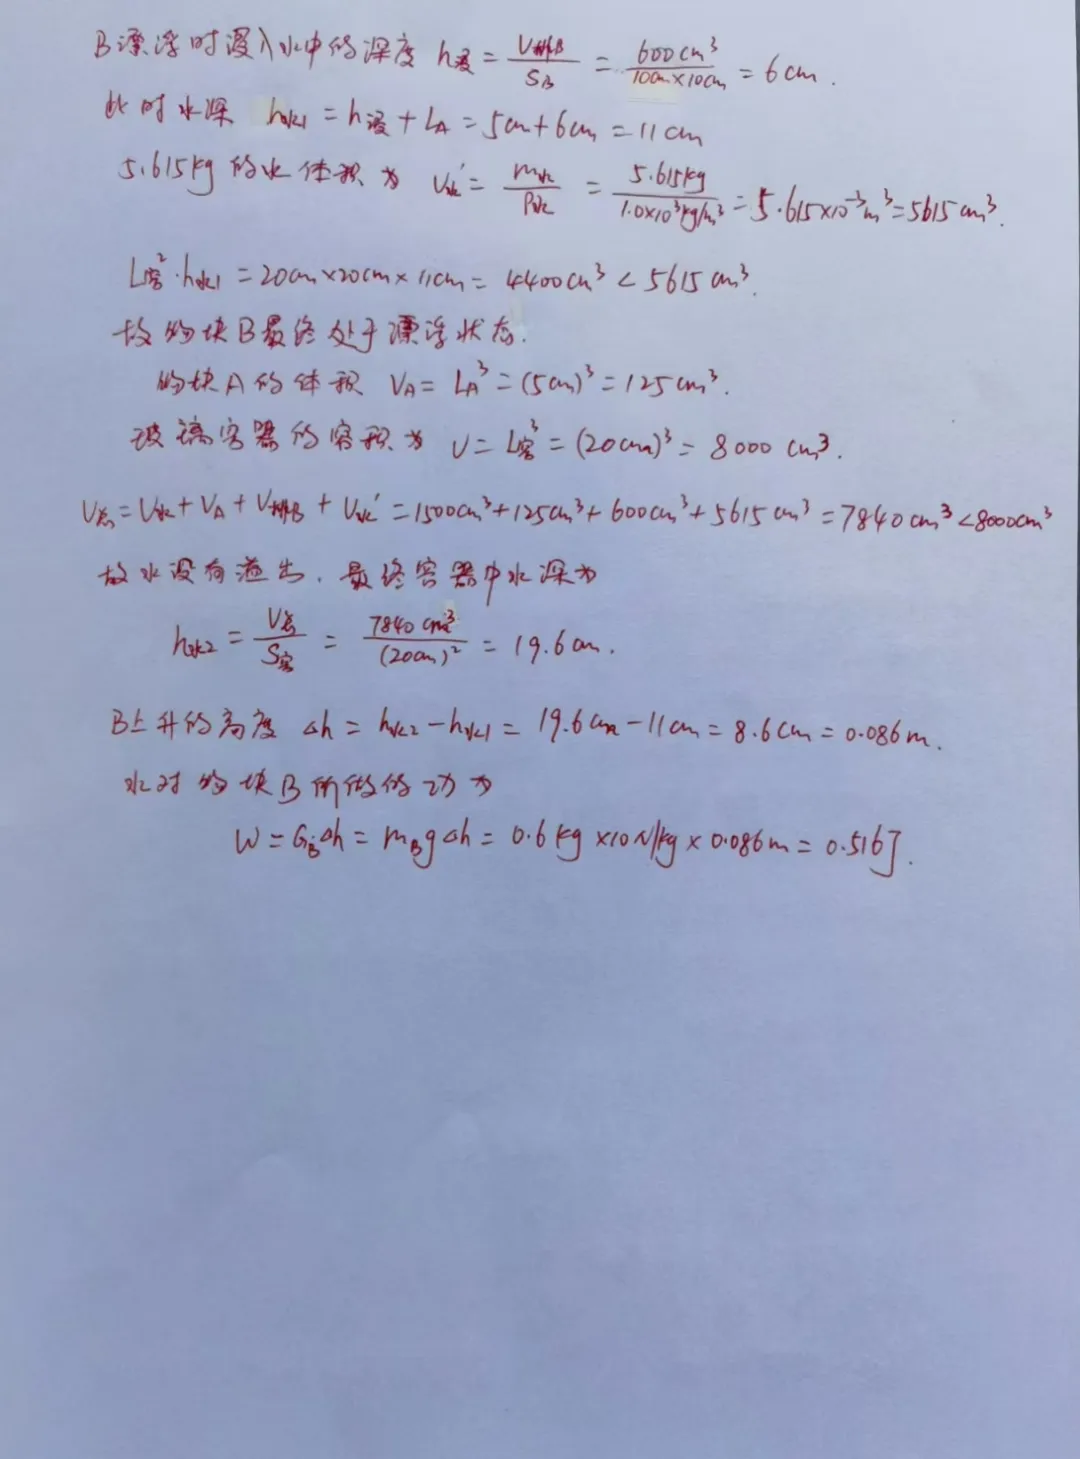 B漂浮时浸入水中的深度 h浸 = V排B/SB = 600cm³/10cm×10cm = 6cm.
此时水深 h水1 = h浸 + LA = 5cm + 6cm = 11cm
5.615kg的水体积为 V水' = m水/ρ水 = 5.615kg/1.0×10³kg/m³ = 5.615×10⁻³m³ = 5615cm³.
L容²·h水1 = 20cm×20cm×11cm = 4400cm³ < 5615cm³.
故物块B最终处于漂浮状态.
物块A的体积 VA = LA³ = (5cm)³ = 125cm³.
玻璃容器的容积为 V = L容³ = (20cm)³ = 8000cm³.
V总 = V水 + VA + V排B + V水' = 1500cm³ + 125cm³ + 600cm³ + 5615cm³ = 7840cm³ < 8000cm³
故水没有溢出. 最终容器中水深为
h水2 = V总/S容 = 7840cm³/(20cm)² = 19.6cm.
B上升的高度 Δh = h水2 - h水1 = 19.6cm - 11cm = 8.6cm = 0.086m.
水对物块B所做的功为
W = GBΔh = mBgΔh = 0.6kg×10N/kg×0.086m = 0.516J.